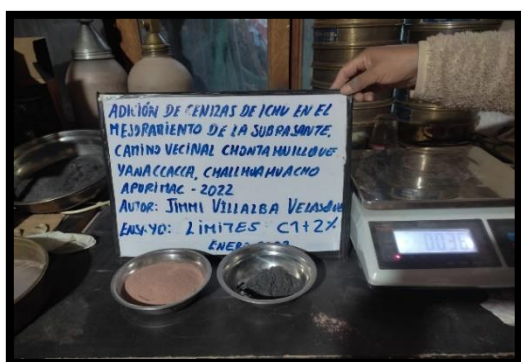 ADICIÓN DE CENIZAS DE ICHU EN EL
MEJORAMIENTO DE LA SUBRASANTE,
CAMINO VECINAL CHONTAHUILLQUE
YANACCACCA, CHALLHUAHUACHO
APURIMAC - 2022
AUTOR: JIMMI VILLALBA VELASQUE
ENSAYO: LIMITES C1+2%
ENERO